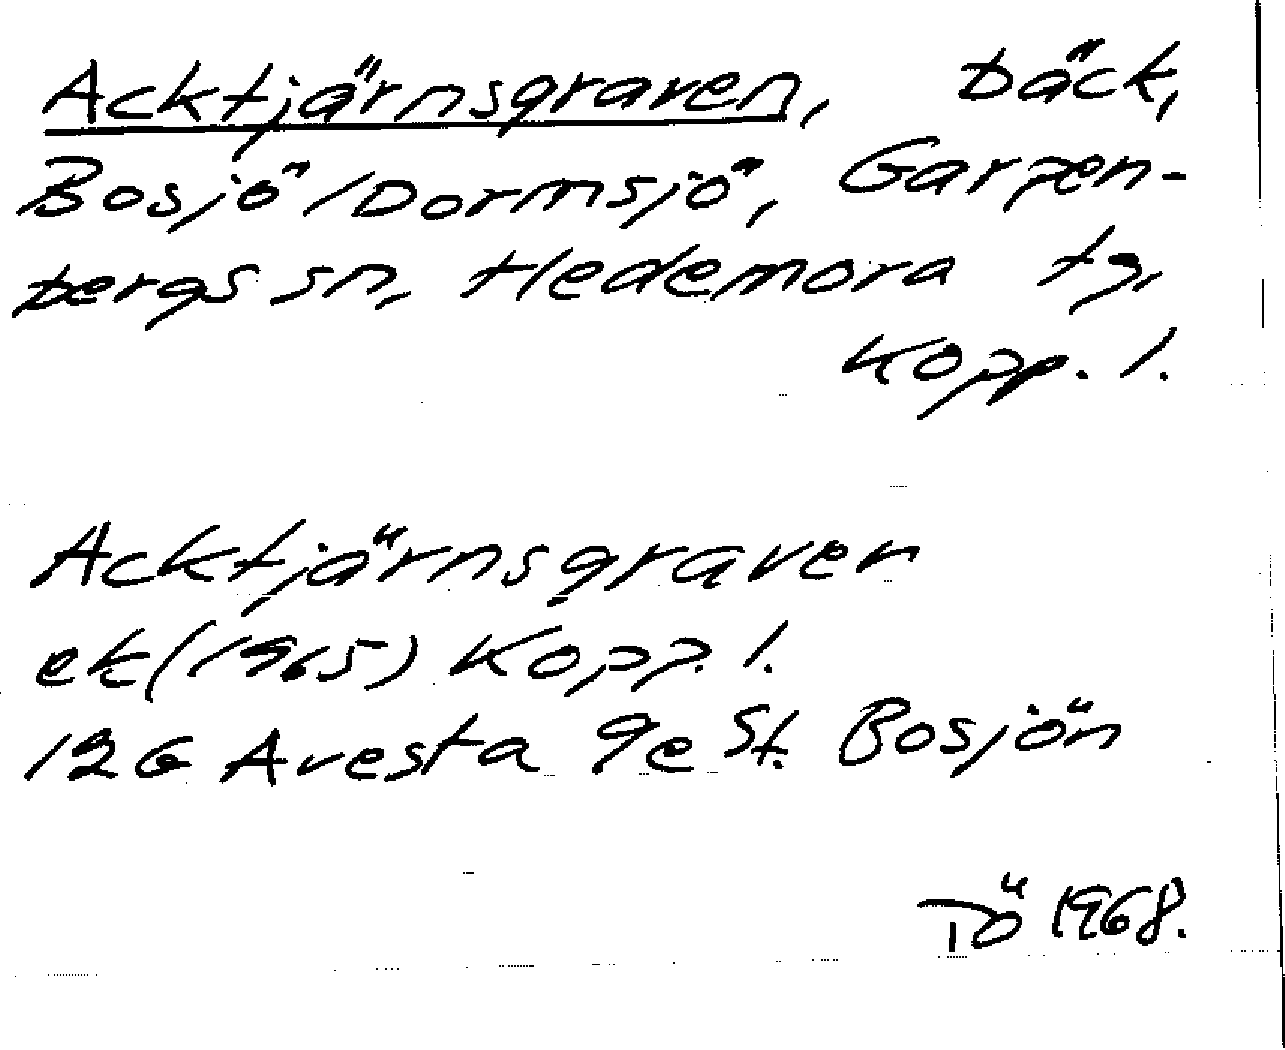 Acktjärnsgraven, bäck,
Bosjö/Dormsjö, Garpen-
bergs sn, Hedemora tg,
Kopp. l.
Acktjärnsgraven
ek (1965) Kopp. l.
12G Avesta 9e St. Bosjön
TÖ 1968.